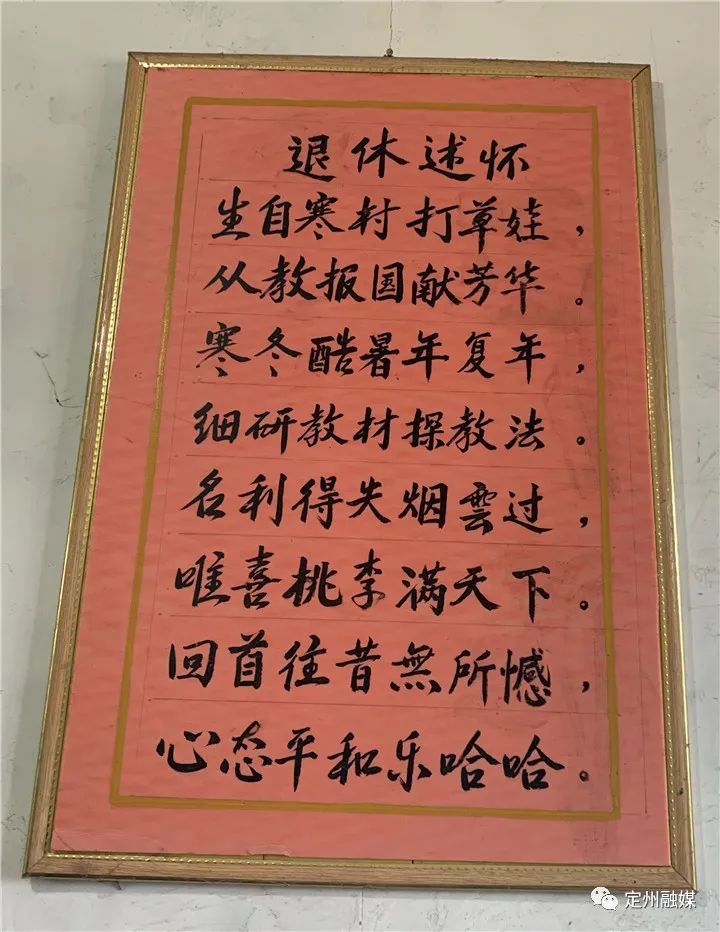 退休述怀
生自寒村打草娃，
从教报国献芳华。
寒冬酷暑年复年，
细研教材探教法。
名利得失烟雲过，
唯喜桃李满天下。
回首往昔無所憾，
心态平和乐哈哈。
定州融媒